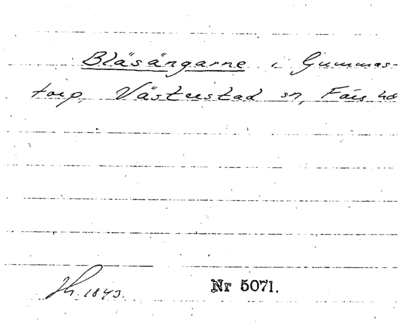 Bläsängarne i Gummas-
torp, Västerstad sn, Färs hd
Jh. 1843.
Nr 5071.